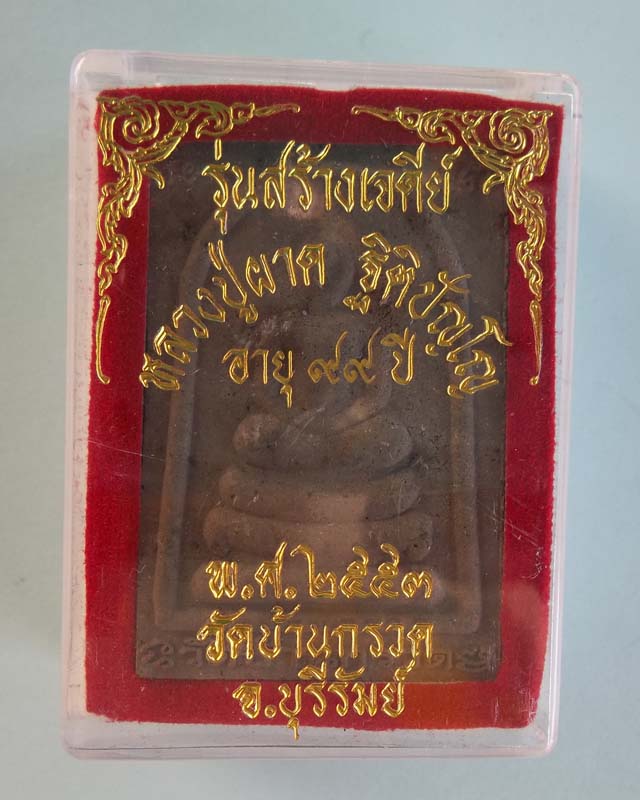 รุ่นสร้างเจดีย์
หลวงปู่ผาด ฐิติปัญโญ
อายุ ๙๙ ปี
พ.ศ.๒๕๕๓
วัดบ้านกรวด
จ.บุรีรัมย์